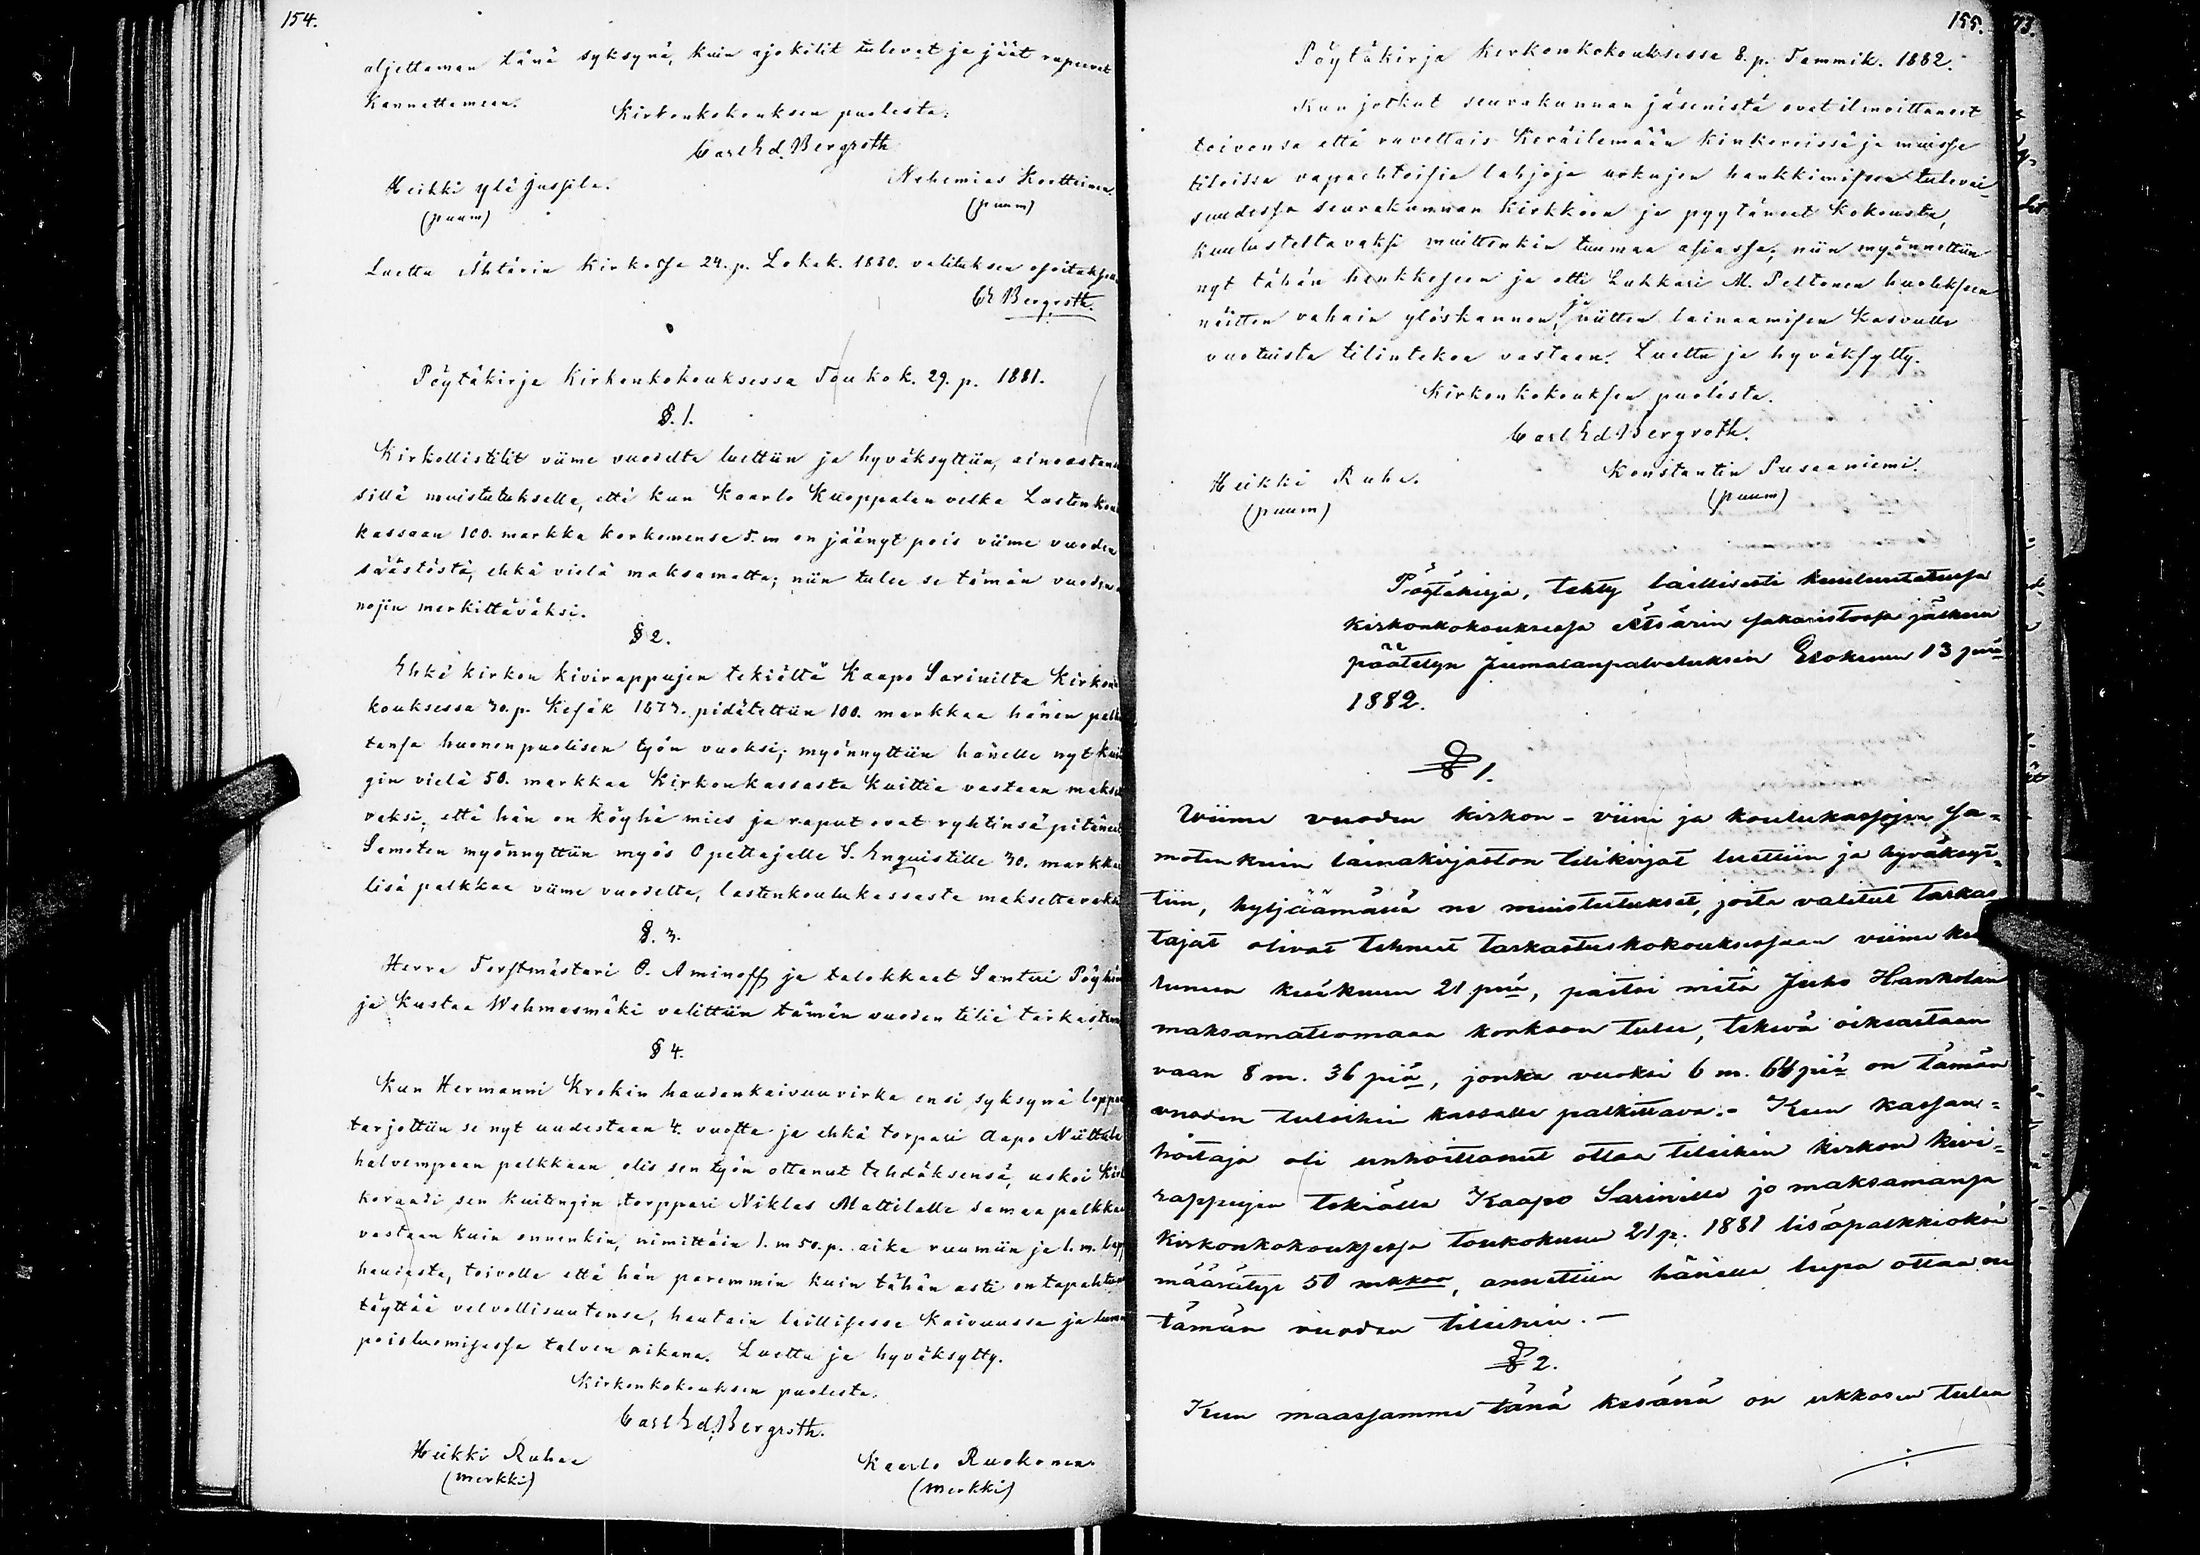 154.
aljettaman tänä syksynä, kuin ajokilit tulevat ja jäät rupeevat
kannattamaan.
Kirkonkokouksen puolesta:
Carl Ed. Bergroth
Heikki ylä Jussila.
(puum)
Nehemias Kortteinen
(puum)
Luettu Ähtärin Kirkossa 24. p. Lokak. 1880. valituksen osoituksen
CE Bergroth.
Pöytäkirja Kirkonkokouksessa Toukok. 29. p. 1881.
§. 1.
Kirkollistilit viime vuodelta luettiin ja hyväksyttiin, ainoastaan
sillä muistutuksella, että kun Kaarlo Kuoppalan velka Lastenkoulu
kassaan 100. markka korkonensa 5. m on jäänyt pois viime vuoden
säästöstä, ehkä vielä maksamatta; niin tulee se tämän vuoden
nojin merkittäväksi.
§ 2.
Ehkä kirkon kivirappujen tekiältä Kaapo Sarinilta Kirkon
kouksessa 30. p. Kesäk 1873. pidätettiin 100. markkaa hänen palk
tansa huononpuolisen työn vuoksi; myönnyttiin hänelle nyt kuiten
gin vielä 50. markkaa Kirkonkassasta Kuittia vastaan makset
vaksi, että hän on köyhä mies ja raput ovat ryhtinsä pitäneet
Samoten myönnyttiin myös Opettajalle S. Enquistille 30. markkaa
lisä palkkaa viime vuodelta, lastenkoulukassasta maksettavaksi
§. 3.
Herra Forstmästari O. Aminoff ja talokkaat Santeri Pöyhön
ja Kustaa Wehmasmäki valittiin tämän vuoden tiliä tarkastam
§ 4.
Kun Hermanni Krekin haudankaivuuvirka ensi syksynä loppuu
tarjottiin se nyt uudestaan 4. vuotta ja ehkä torpari Aapo Niittula
halvempaan palkkaan olis sen työn ottanut tehdäksensä, uskoi Kirk
koraadi sen kuitengin torppari Niklas Mattilalle samaa palkkaa
vastaan kuin ennenkin, nimittäin 1. m 50. p. aika ruumiin ja 1. m. lapsen
haudasta, toivolla että hän paremmin kuin tähän asti on tapahtunut
täyttää velvollisuutensa, hautain laillisessa Kaivuussa ja lumen
poisluomisessa talven aikana. Luettu ja hyväksytty.
Kirkonkokouksen puolesta:
Carl Ed. Bergroth.
Heikki Ruhaa
(merkki)
Kaarlo Ruokonen
(merkki)
155.
Pöytäkirja Kirkonkokouksessa 8. p. Tammik. 1882.
Kun jotkut seurakunnan jäsenistä ovat ilmoittaneet
toivonsa että ruvettais Keräilemään Kinkereissä ja muissa
tiloissa vapaehtoisia lahjoja urkujen hankkimiseen tulevai
suudessa seurakunnan Kirkkoon ja pyytäneet Kokousta,
Kuulusteltavaksi muittenkin tuumaa asiassa; niin myönnettiin
nyt tähän hankkeseen ja otti Lukkari M. Peltonen huoleksen
näitten rahain ylöskannon, ja niitten lainaamisen Kasvulle
vuotuista tilintekoa vastaan. Luettu ja hyväksytty.
Kirkonkokouksen puolesta.
Carl Ed Bergroth.
Heikki Ruha.
(puum)
Konstantin Pusaaniemi.
(puum)
Pöytäkirja, tehty laillisesti kuulutetussa
kirkonkokouksessa Ätsärin sakaristossa jälkeen
päätetyn Jumalanpalveluksen Elokuun 13 p:nä
1882.
§ 1.
Wiime vuoden kirkon- viini ja koulukassojen sa=
moten kuin lainakirjaston tilikirjat luettiin ja hyväksyt=
tiin, hyljäämättä ne muistutukset, joita valitut tarkas
tajat olivat tehneet tarkastuskokouksessaan viime ku
luneen kuukuun 21 p:nä, paitsi mitä Juho Hankolan
maksamattomaan korkoon tulee, tekevä oikeastaan
vaan 8 m. 36 p:iä, jonka vuoksi 6 m. 64 p:iä on tämän
vuoden tuloihin kassalle palkittava.- Kun kassan=
hoitaja oli unhoittanut ottaa tileihin kirkon kivi=
rappujen tekiälle Kaapo Sarinille jo maksamansa
kirkonkokouksessa toukokuun 21 p. 1881 lisäpalkkioksi
määrätyt 50 mkkaa, annettiin hänelle lupa ottaa ne
tämän vuoden tileihin. -
§ 2.
Kun maassamme tänä kesänä on ukkosen tulen